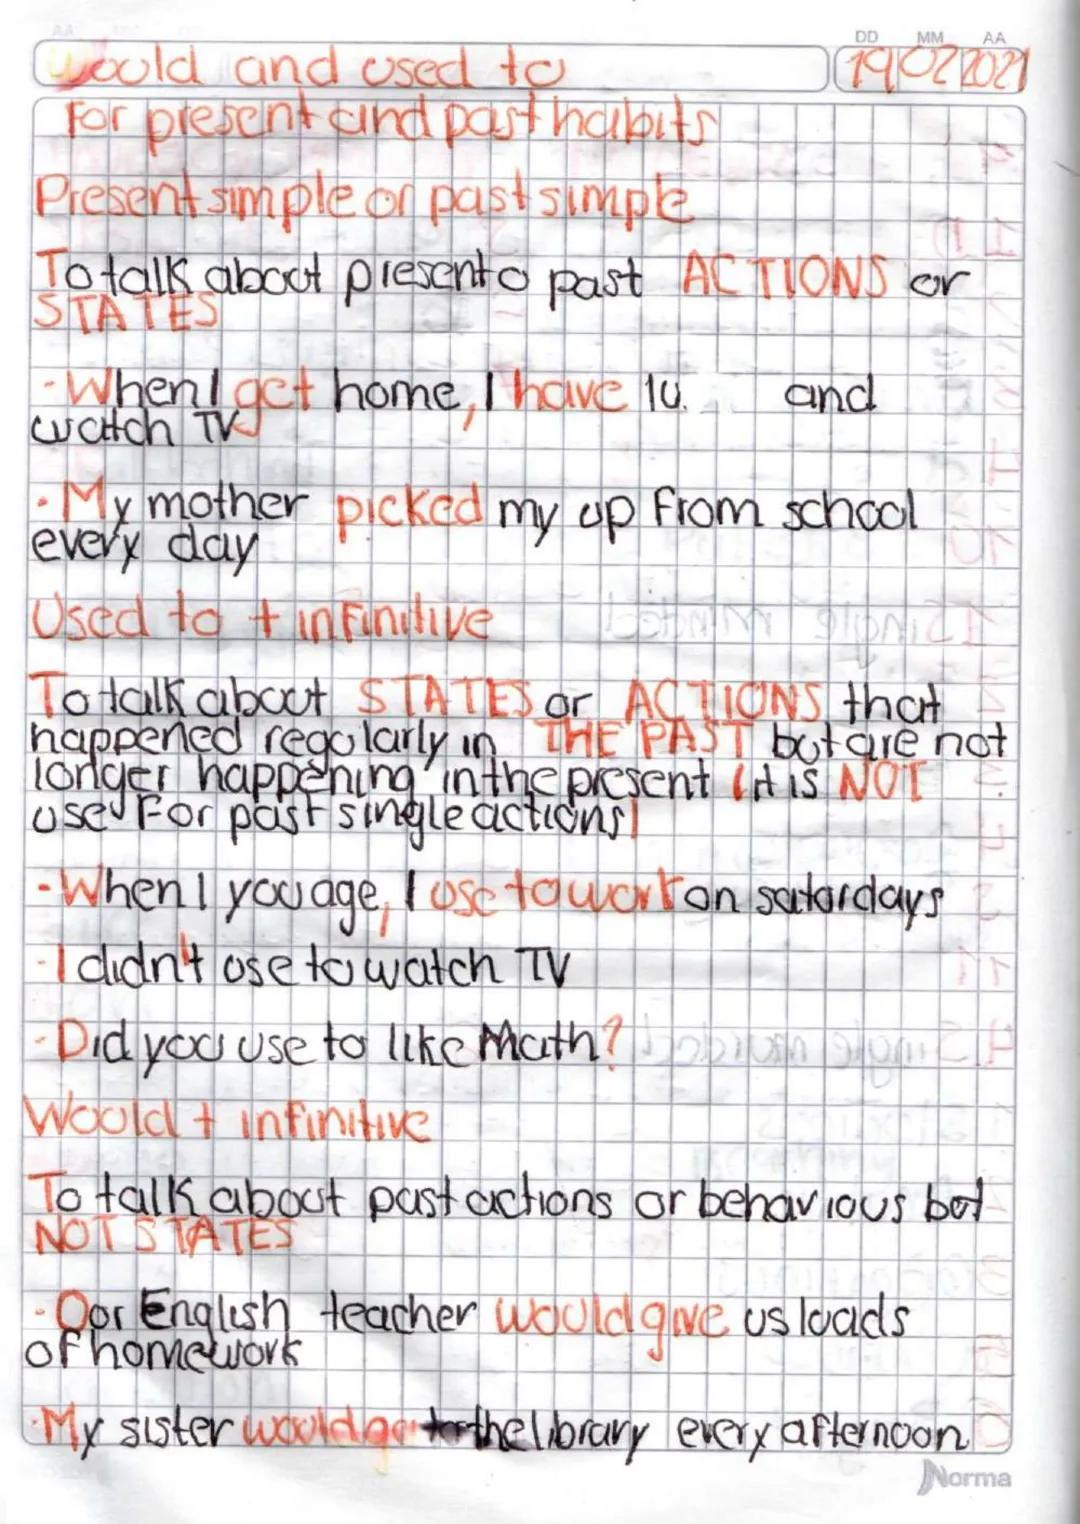 DD MM AA
Would and used to 19 02 2021
For present and past habits
Present simple or past simple
To talk about present o past ACTIONS or
STATES
- When I get home, I have 1u. and
watch TV
- My mother picked my up from school
every day
Used to + infinitive
To talk about STATES or ACTIONS that
happened regularly in THE PAST but are not
longer happening in the present (it is NOT
use for past single actions)
- When I you age, I use to work on saturdays
- I didn't use to watch TV
- Did you use to like Math?
Would + infinitive
To talk about past actions or behavious but
NOT STATES
- Our English teacher would give us loads
of homework
- My sister would go to the library every afternoon
Norma